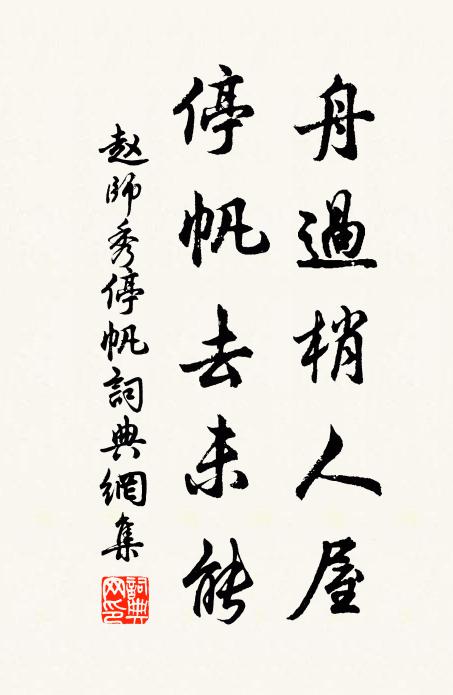 舟過梢人屋
停帆去未能
赵師秀停帆詞典網集
詞典网印